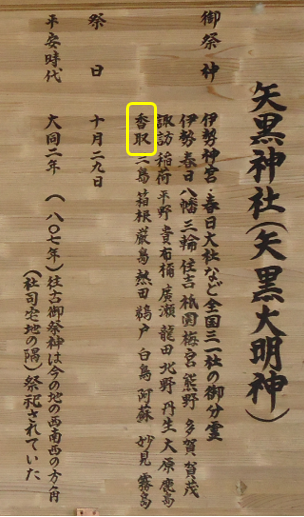 矢黒神社(矢黒大明神)
御祭神
伊勢神宮・春日大社など全国三一社の御分霊
伊勢 春日 八幡 三輪 住吉 祇園 梅宮 熊野 多賀 賀茂
諏訪 稲荷 平野 貴布禰 廣瀬 龍田 北野 丹生 大原 鹿島
香取 三島 箱根 厳島 熱田 鵜戸 白鳥 阿蘇 妙見 霧島
祭日 十月二九日
平安時代 大同二年 (八〇七年)往古御祭神は今の地の西南西の方角
(社司宅地の隅)祭祀されていた